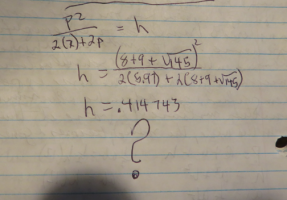 p2
2(x)+2p = h
h = (8+9+√145)²
2(8·9) + 2(8+9+√145)
h = .414743
?